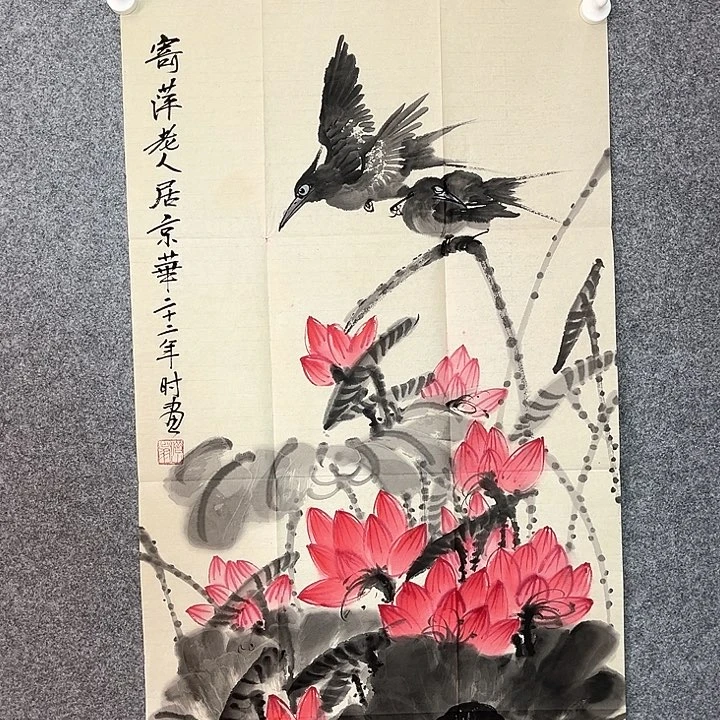 寄萍老人居京華二十二年时画